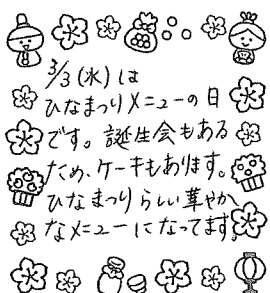 3/3(水)は
ひなまつりメニューの日
です。誕生会もある
ため、ケーキもあります。
ひなまつりらしい華やか
なメニューになってます。